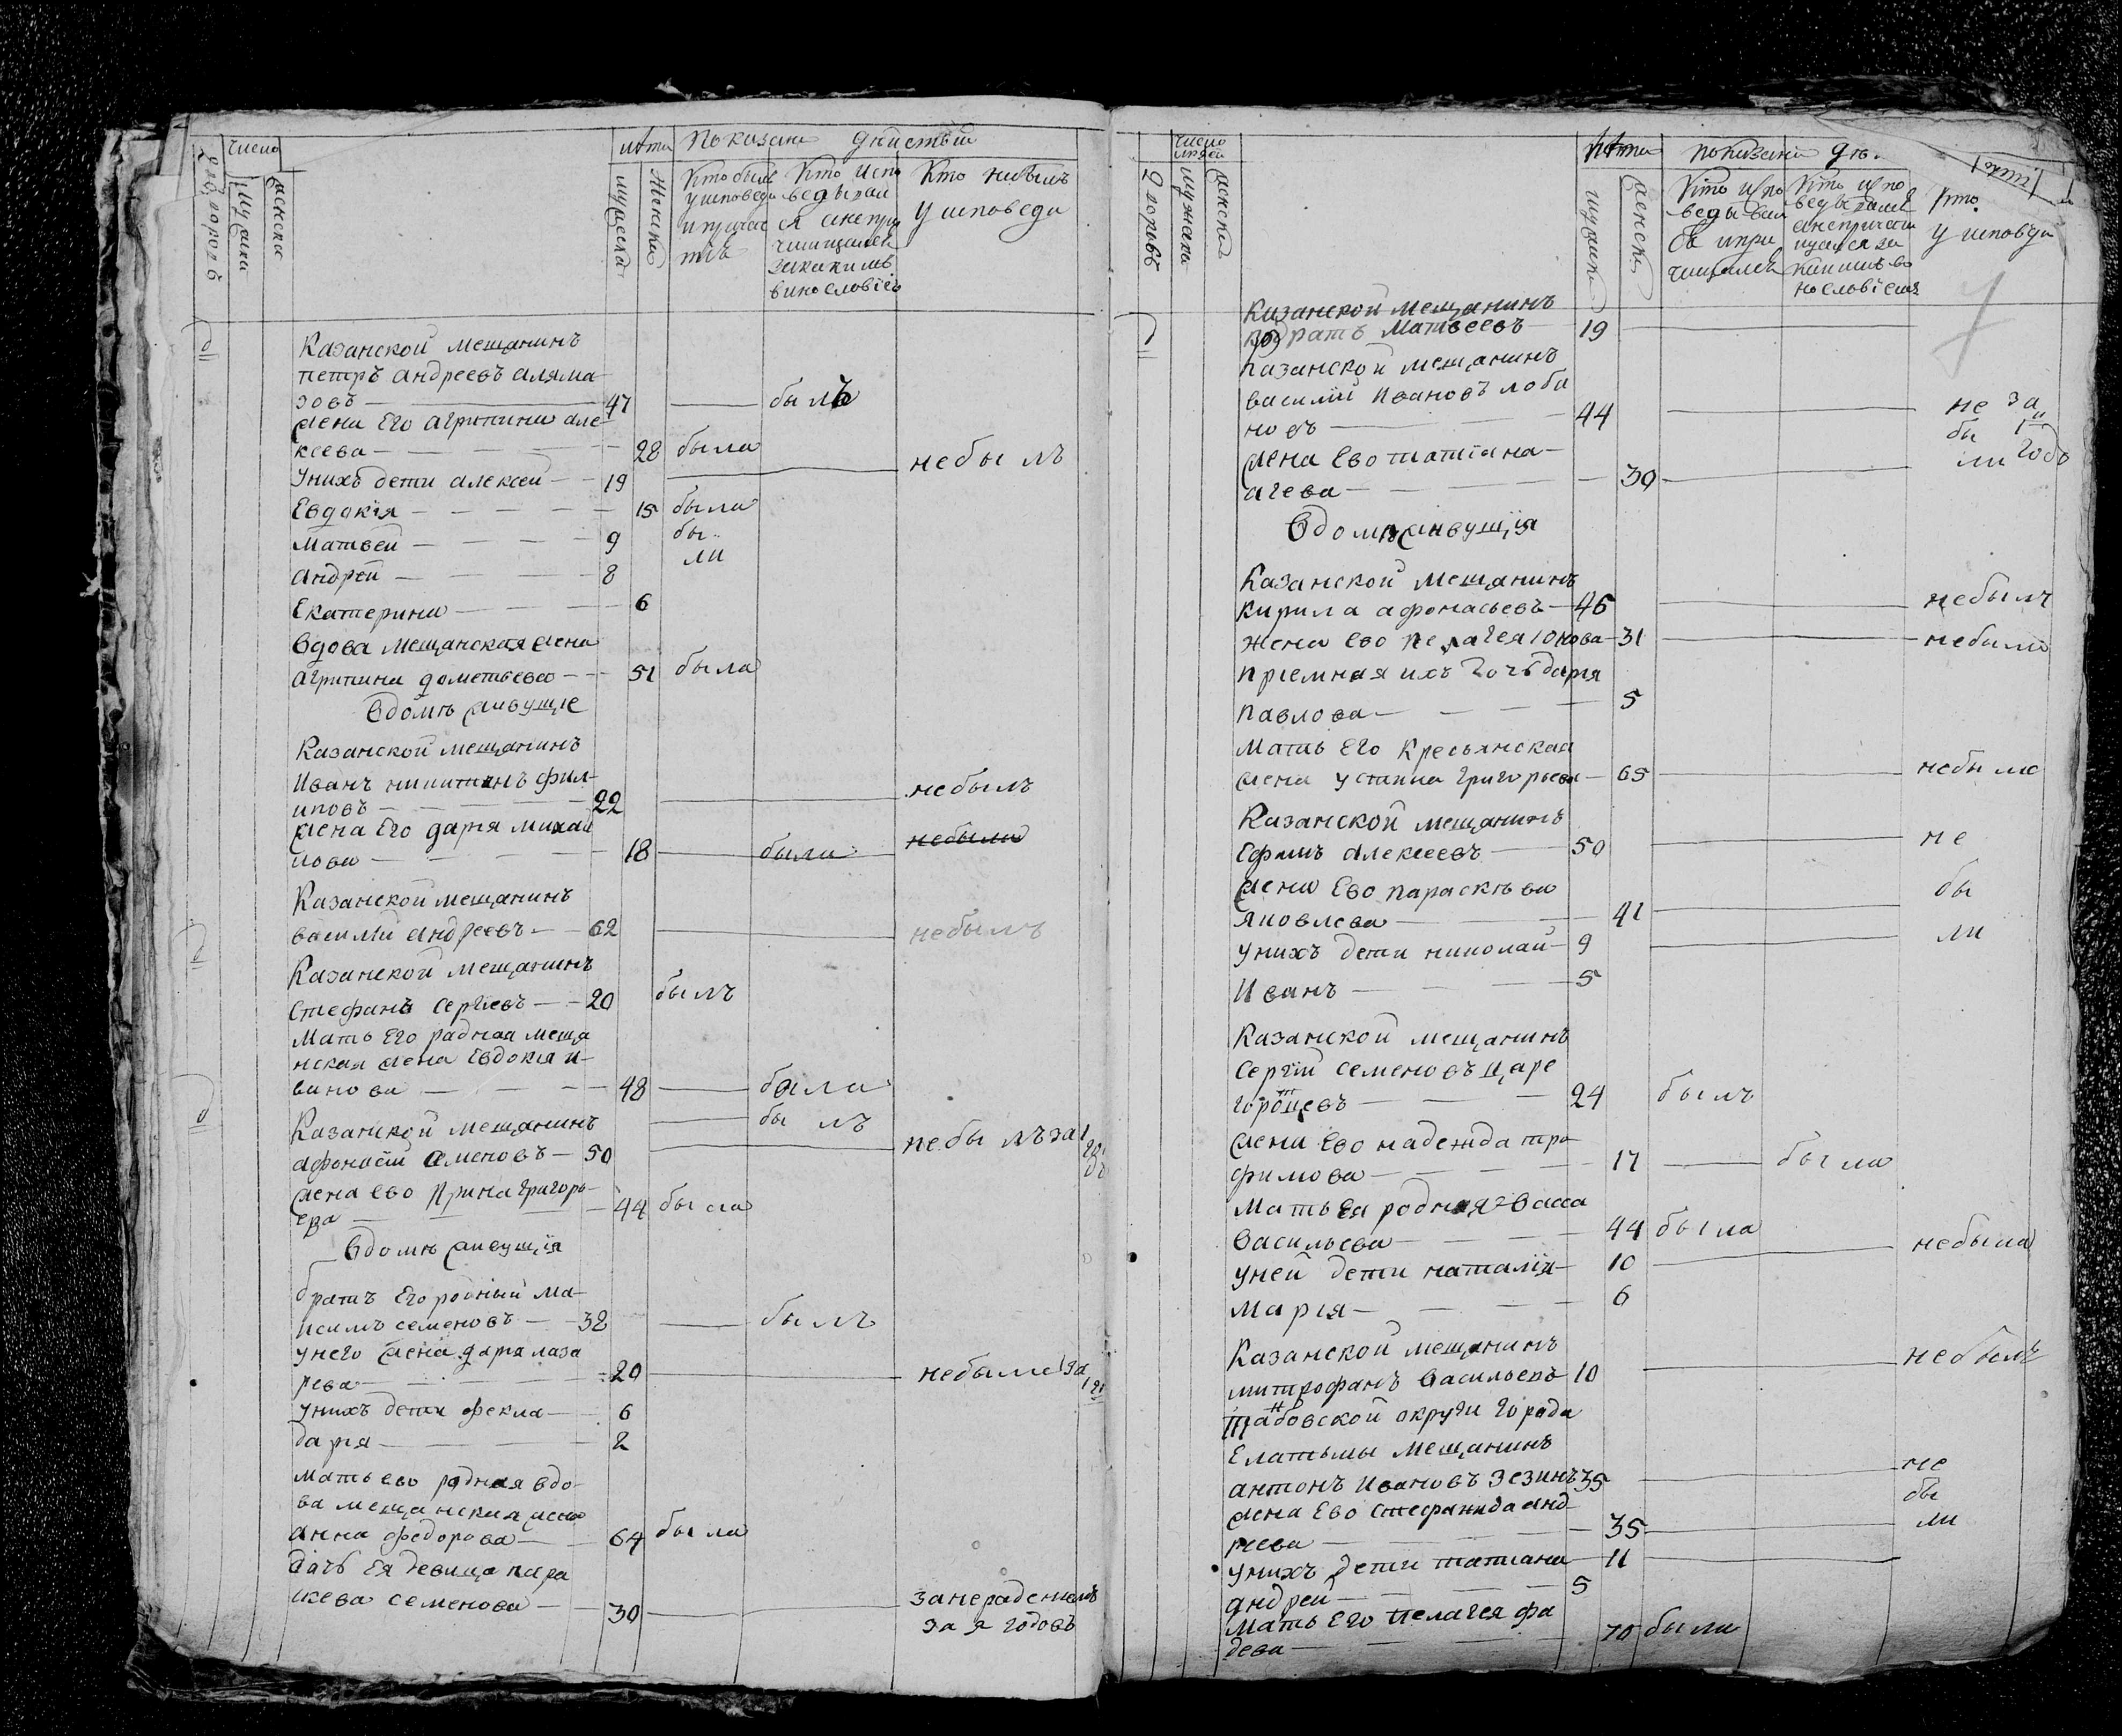 число
лѣта показани дѣиствии
дворовъ
мужска
женска
мужеска
Женски
Кто былъ
у исповеди
и причас
тiѣ
Кто испо
ведывал
ся а непри
чащался
за какимъ
винословiем
Кто небылъ
у исповеди
Казанской мещанинъ
петръ андреевъ аляма-
зовъ — 47 — былъ
жена Его агрипина але-
ксеева — 28 была
Унихъ дети алексеи — 19 — небылъ
Евдокiя — 15 была
матвеи — 9 бы-
андреи — 8 ли
Екатерина — 6
вдова мещанская жена
агрипина дометьева — 51 была
вдомѣ живущiе
Казанской мещанинъ
Иванъ никитинъ фил-
иповъ — 22 — небылъ
жена Его дарья михаи
лова — 18 — была — небыла
Казанской мещанинъ
василiй андреевъ — 62 — небылъ
Казанской мещанинъ
Стефанъ Сергѣевъ — 20 былъ
мать Его радная меща
нская жена Евдокiя и-
ванова — 48 — была
Казанской мещанинъ — былъ
афонасiй Семеновъ — 50 — небылъ за 1 годъ
жена ево Ирина григорь-
ева — 44 была
вдомѣ живущiя
братъ Его родный ма-
ксимъ семеновъ — 32 — былъ
унего жена дарья лаза
рева — 20 — небыла за 1 го
унихъ дети фекла — 6
дарья — 2
мать ево родная вдо-
ва мещанская жена
анна федорова — 64 была
дочь Ея девица пара
скева семенова — 30 — занераденiемъ
за я годовъ
число
людей
лѣта показани дѣи.
дворовъ
мужска
женски
мужски
женски
Кто испо
ведывал
ся и при
чащался
Кто испо
ведывался
анепричащ
щался за
какимъ ви
нословiемъ
Кто.
у исповѣди
Казанской мещанинъ
Кодратъ матвеевъ — 19
Казанской мещанинъ
василiй Ивановъ лоба
новъ — 44 — не за
бы 1
жена Ево татiана — ли годъ
агева — 30
вдомѣ живущiя
Казанской мещанинъ
кирила афонасьевъ — 46 — небылъ
жена ево пелагея Юкова — 31 — небыла
прiемная ихъ дочь дарья
павлова — 5
мать Его кресьянская
жена устинia григорьева — 65 — небыла
Казанской мещанинъ
Ефимъ алексеевъ — 50 — не
жена Ево параскѣва бы
яковлева — 41
унихъ дети николай — 9 — ли
Иванъ — 5
Казанской мещанинъ
Сергiй семеновъ царе
городцевъ — 24 былъ
жена Ево надежда тро-
фимова — 17 — была
мать Ея родная васса
васильева — 44 была
уней дети наталiя — 10 — небыла
марiя — 6
Казанской мещанинъ
митрофанъ васильевъ 10 — небылъ
Танбовской округи города
Елатьмы мещанинъ
антонъ Ивановъ Зезинъ 35 — не
жена Ево Стефанида анд- бы
реева — 35 — ли
унихъ дети татiана — 11
андреи — 5
мать Его пелагея фа
деева — 70 была